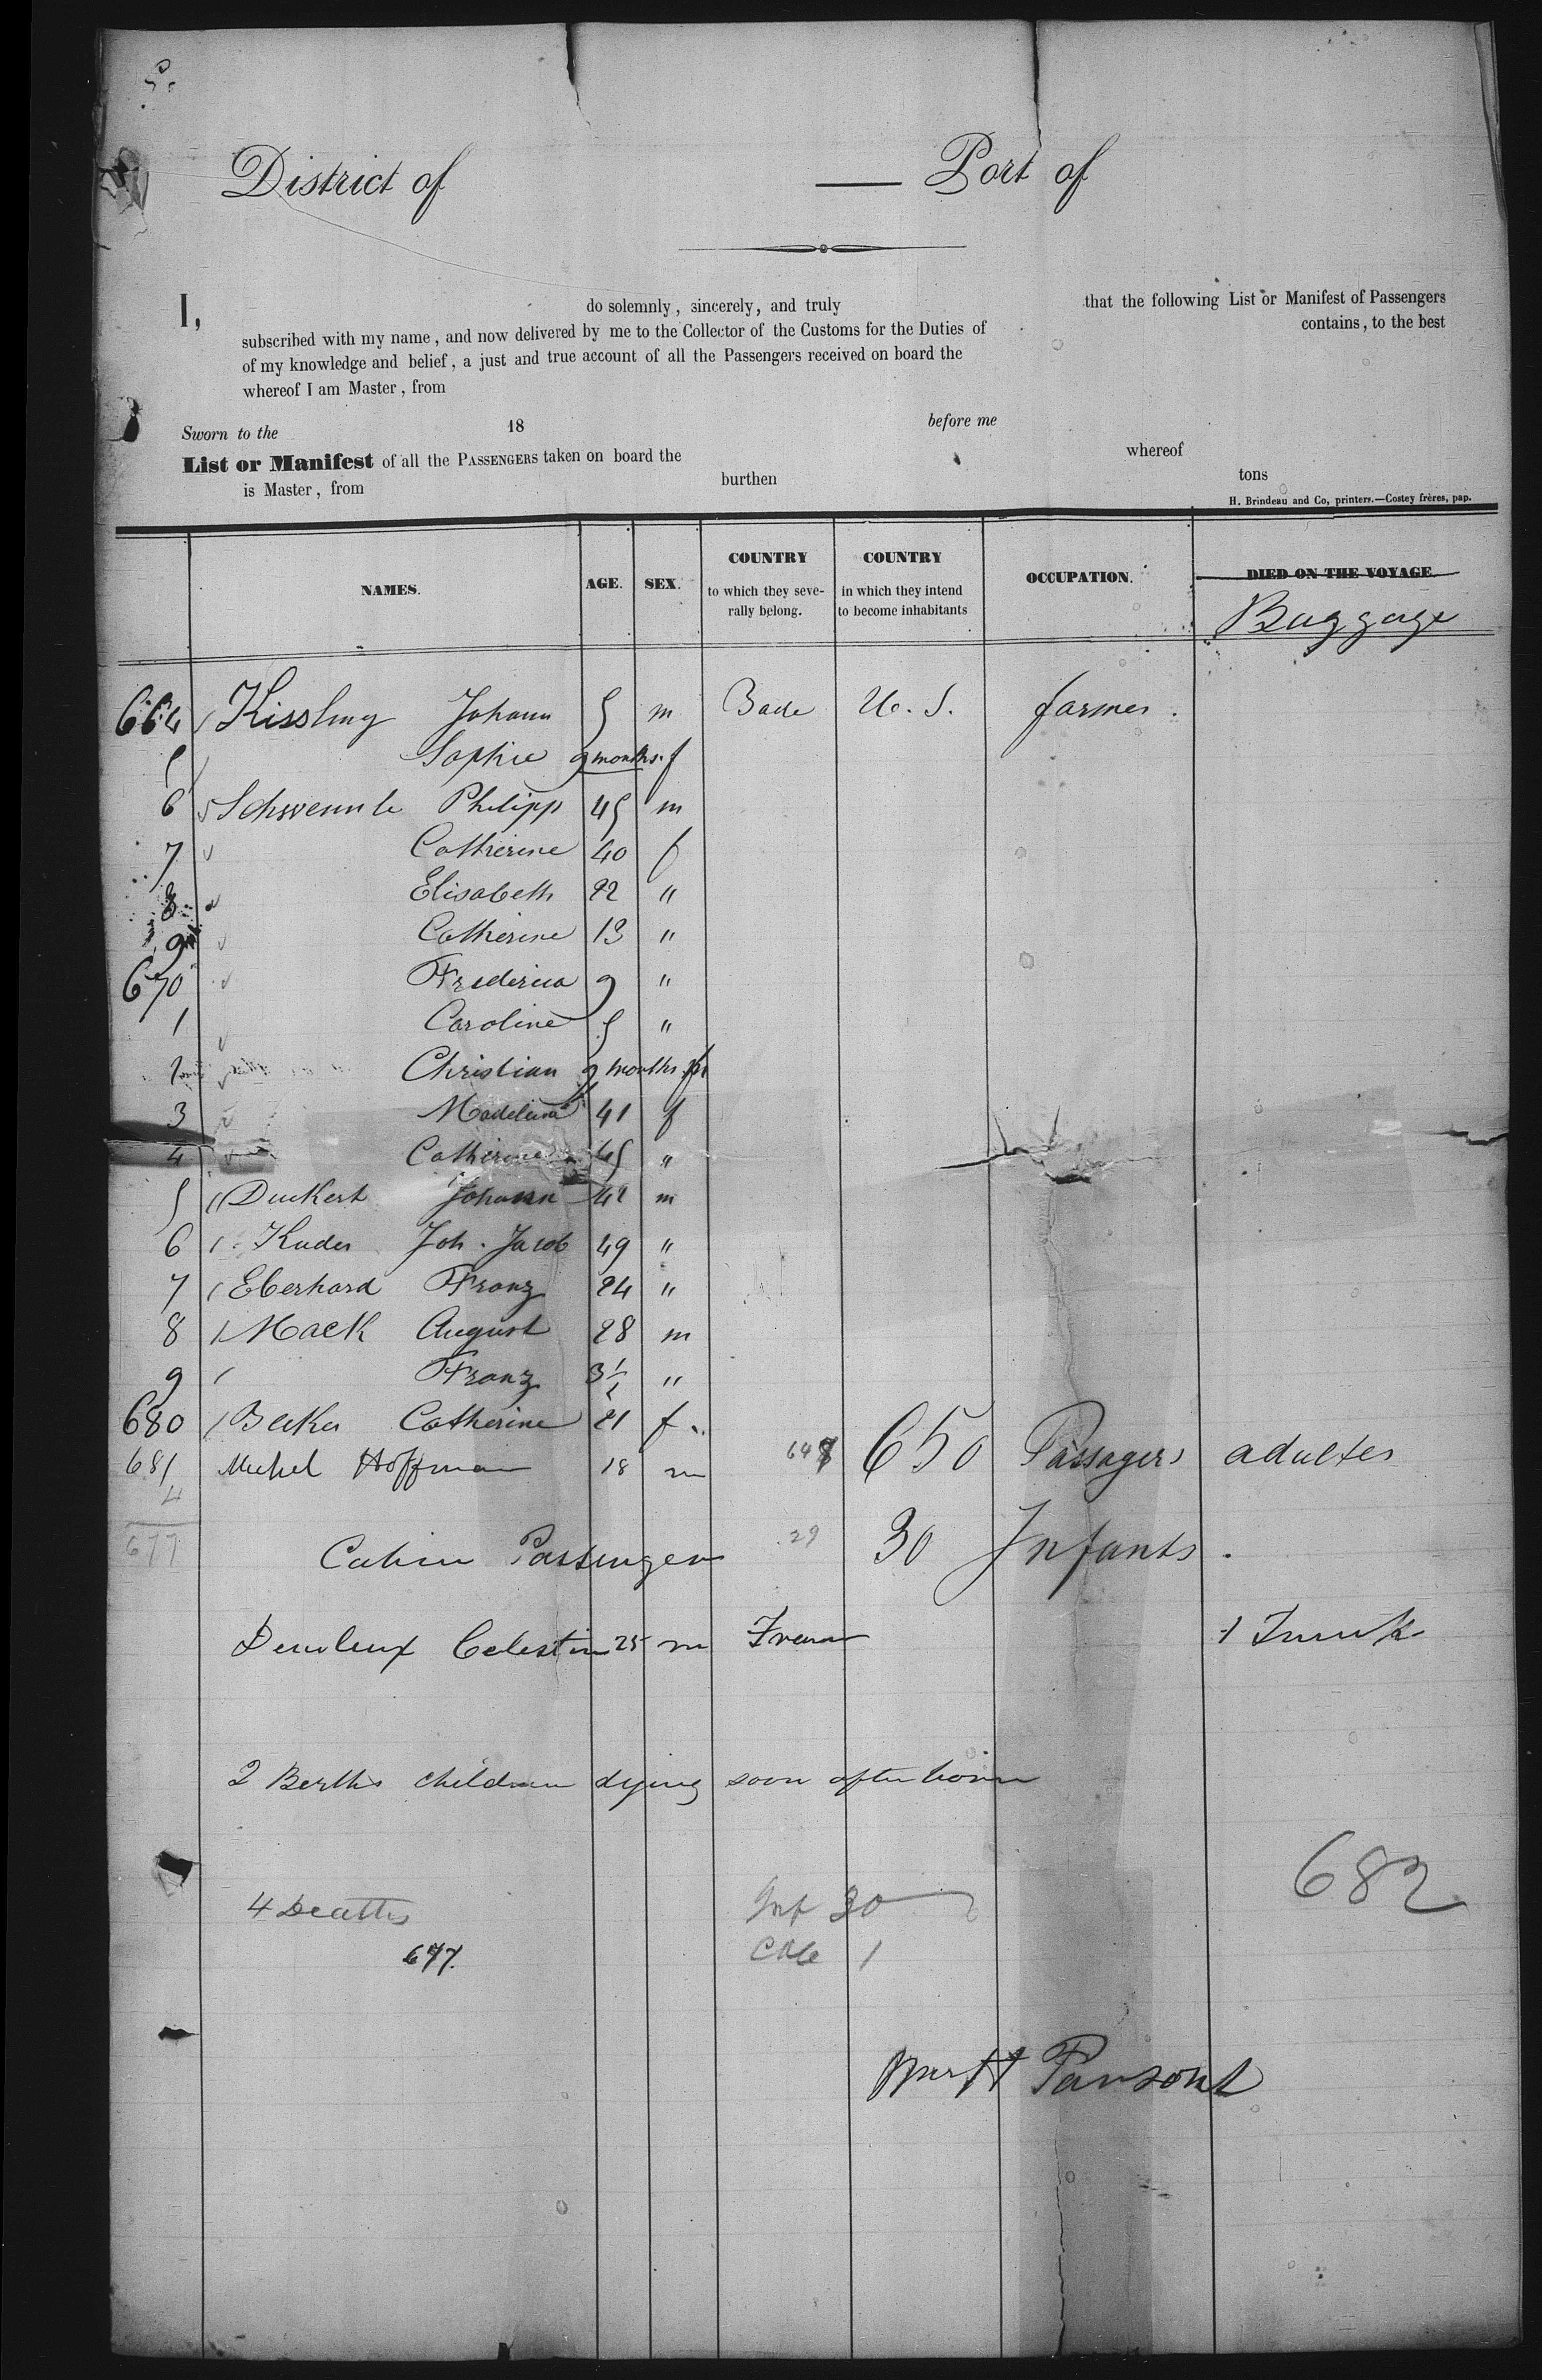 District of — Port of
I, do solemnly, sincerely, and truly that the following List or Manifest of Passengers
subscribed with my name, and now delivered by me to the Collector of the Customs for the Duties of contains, to the best
of my knowledge and belief, a just and true account of all the Passengers received on board the
whereof I am Master, from
Sworn to the 18 before me
List or Manifest of all the PASSENGERS taken on board the whereof
is Master, from burthen tons
H. Brindeau and Co, printers.—Costey frères, pap.
NAMES. AGE. SEX. COUNTRY to which they severally belong. COUNTRY in which they intend to become inhabitants OCCUPATION. DIED ON THE VOYAGE.
Baggage
664 Kissling Johann 5 m Bade U. S. farmer.
5 Sophie 9 months. f
6 Schwennle Philipp 45 m
7 Catherine 40 f
8 Elisabeth 22 "
9 Catherine 13 "
670 Frederica 9 "
1 Caroline 5 "
2 Christian 9 months m
3 Madelaine 41 f
4 Catherine 45 "
5 Duckert Johann 42 m
6 Kuder Joh. Jacob 49 "
7 Eberhard Franz 24 "
8 Mack August 28 m
9 Franz 3 1/2 "
680 Beker Catherine 21 f
648 650 Passagers adultes
681 Michel Hoffman 18 m
4
677
29 30 Infants.
Cabin Passengers
Celestin 25 m France 1 Trunk
2 Berths children dying soon after born
682
4 Deaths Inf 30
677. Cab 1
Parsons